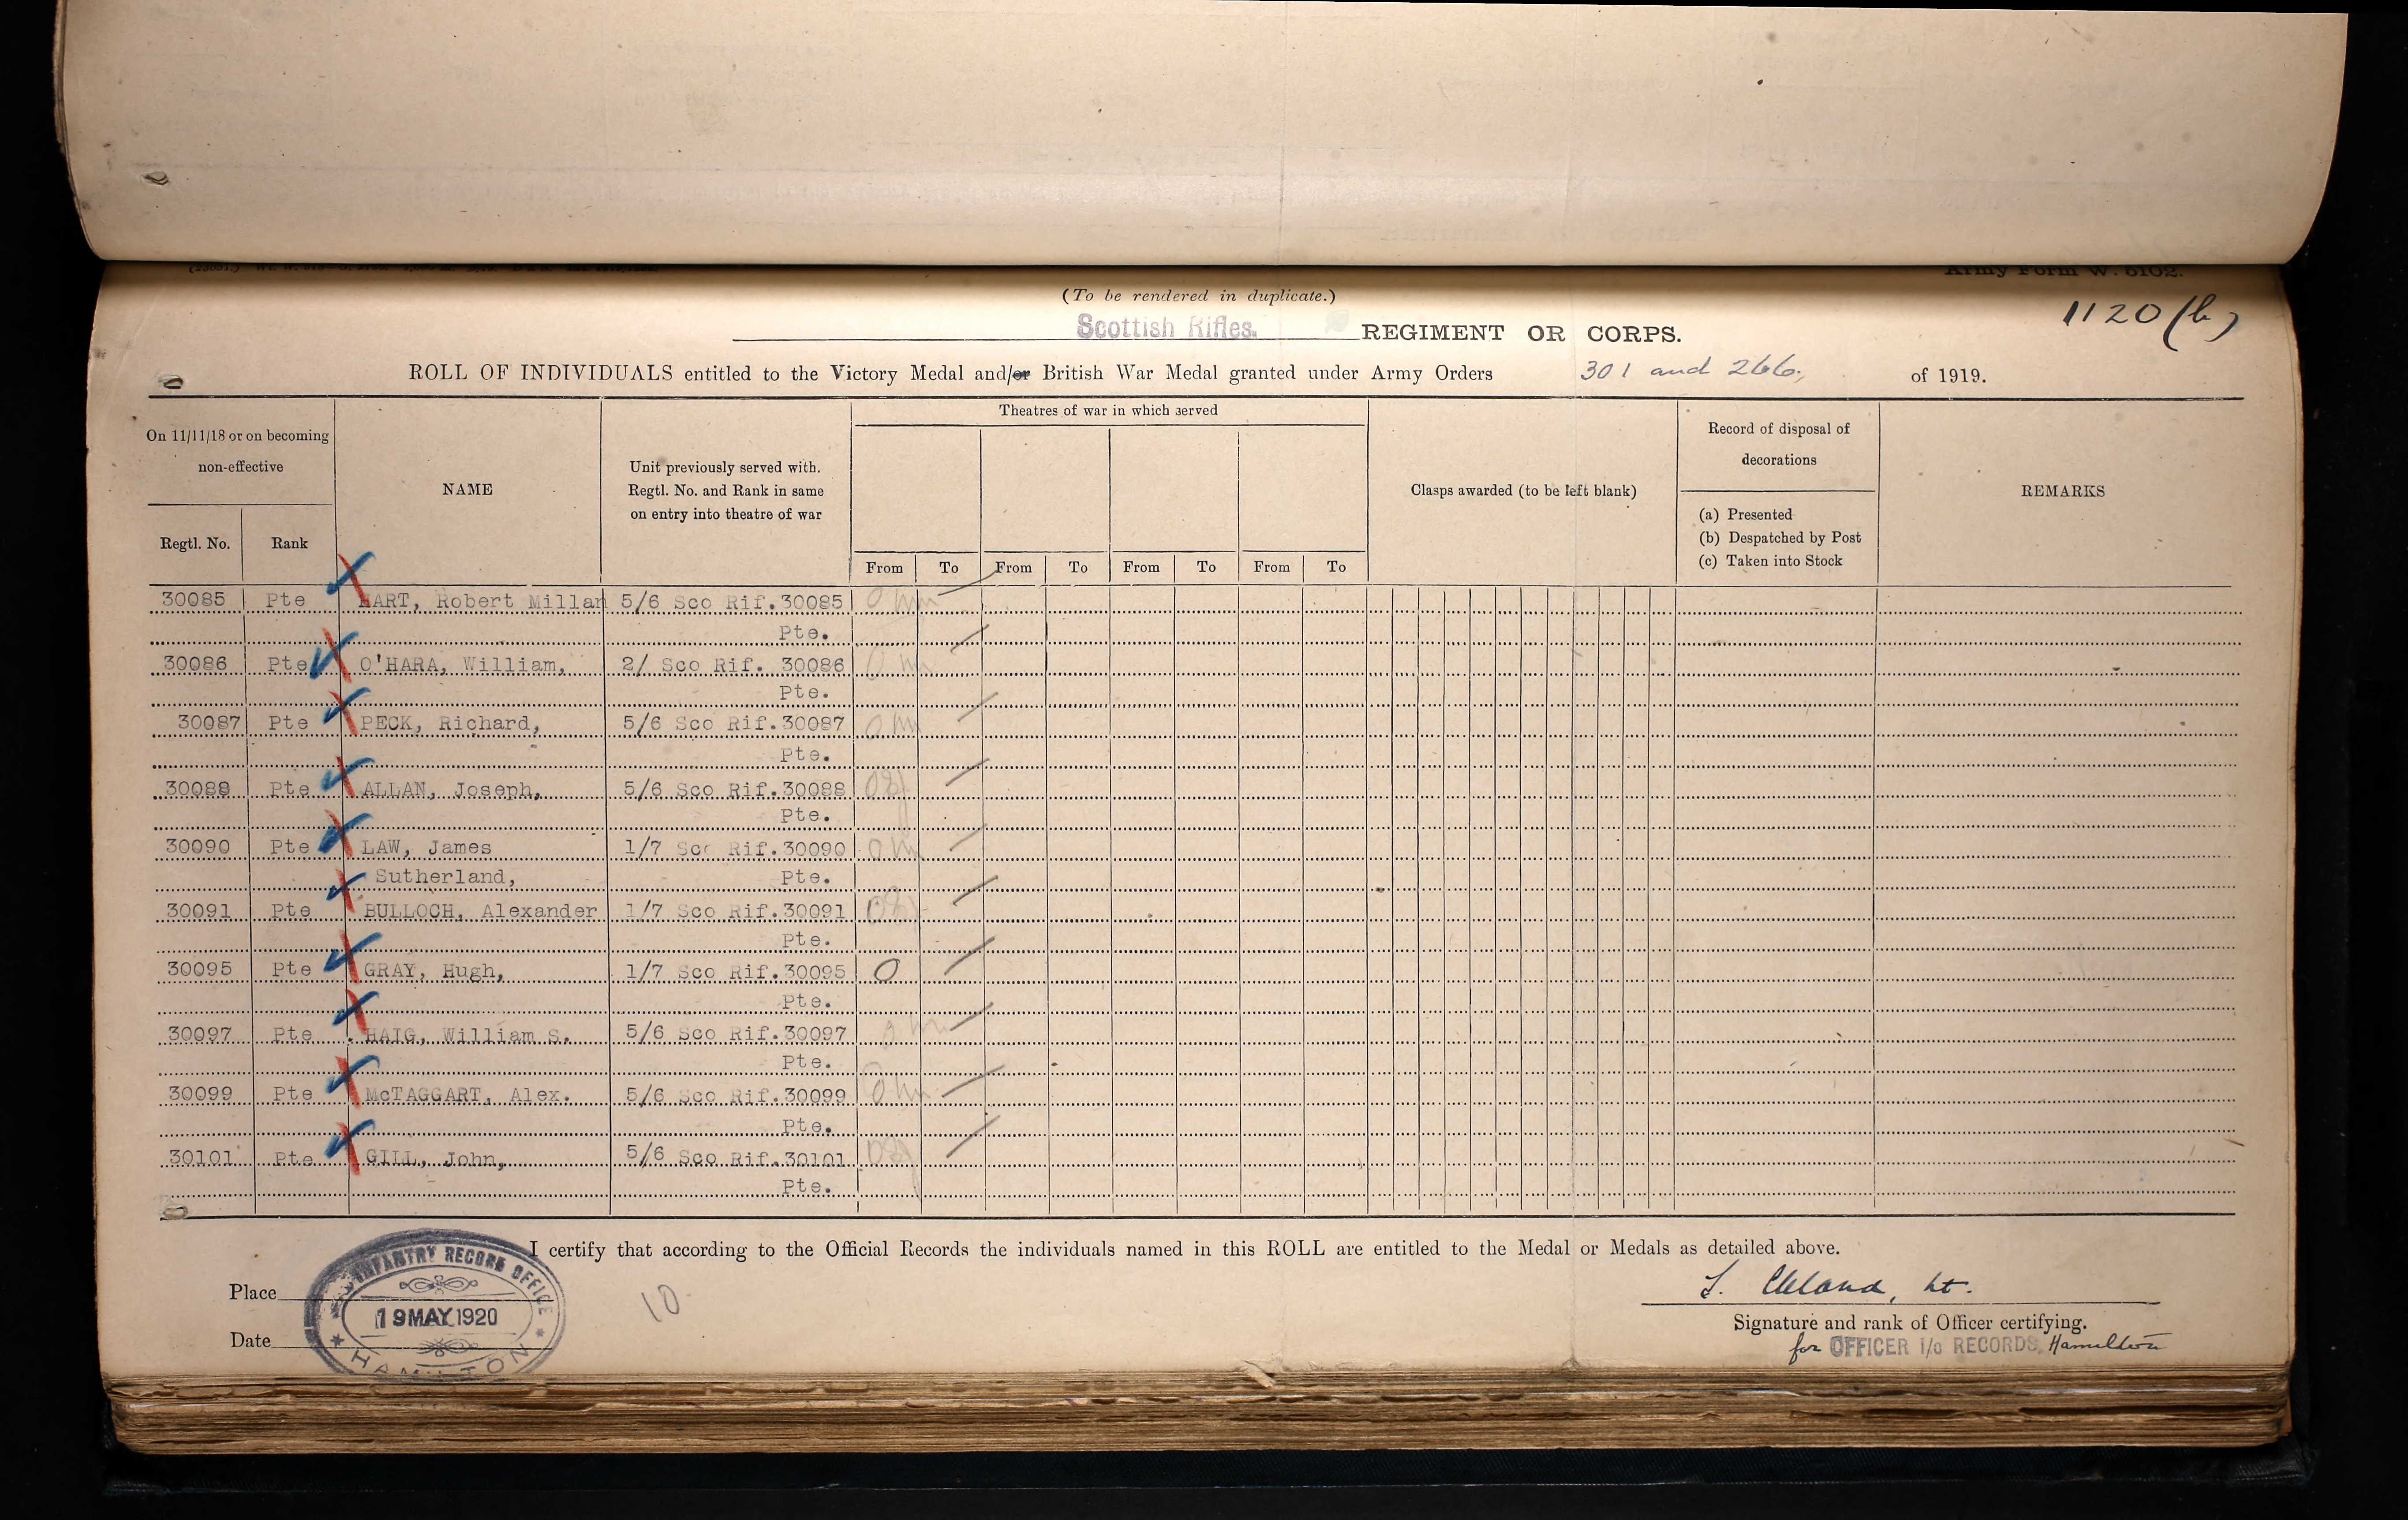 Army Form W. 5102.
(To be rendered in duplicate.)
1120(b)
Scottish Rifles. REGIMENT OR CORPS.
ROLL OF INDIVIDUALS entitled to the Victory Medal and/or British War Medal granted under Army Orders 301 and 266, of 1919.
Theatres of war in which served
On 11/11/18 or on becoming
non-effective
Regtl. No. Rank
NAME
Unit previously served with.
Regtl. No. and Rank in same
on entry into theatre of war
From To From To From To From To
Clasps awarded (to be left blank)
Record of disposal of
decorations
(a) Presented
(b) Despatched by Post
(c) Taken into Stock
REMARKS
30085 Pte HART, Robert Millar 5/6 Sco Rif. 30085
Pte.
30086 Pte O'HARA, William, 2/ Sco Rif. 30086
Pte.
30087 Pte PECK, Richard, 5/6 Sco Rif. 30087
Pte.
30088 Pte ALLAN, Joseph, 5/6 Sco Rif. 30088
Pte.
30090 Pte LAW, James 1/7 Sco Rif. 30090
Sutherland, Pte.
30091 Pte BULLOCH, Alexander 1/7 Sco Rif. 30091
Pte.
30095 Pte GRAY, Hugh, 1/7 Sco Rif. 30095 O
Pte.
30097 Pte HAIG, William S. 5/6 Sco Rif. 30097
Pte.
30099 Pte McTAGGART, Alex. 5/6 Sco Rif. 30099
Pte.
30101 Pte GILL, John, 5/6 Sco Rif. 30101
Pte.
I certify that according to the Official Records the individuals named in this ROLL are entitled to the Medal or Medals as detailed above.
Place
Date
INFANTRY RECORD OFFICE
19 MAY 1920
HAMILTON
10
Cleland, Lt.
Signature and rank of Officer certifying.
for OFFICER I/c RECORDS, Hamilton